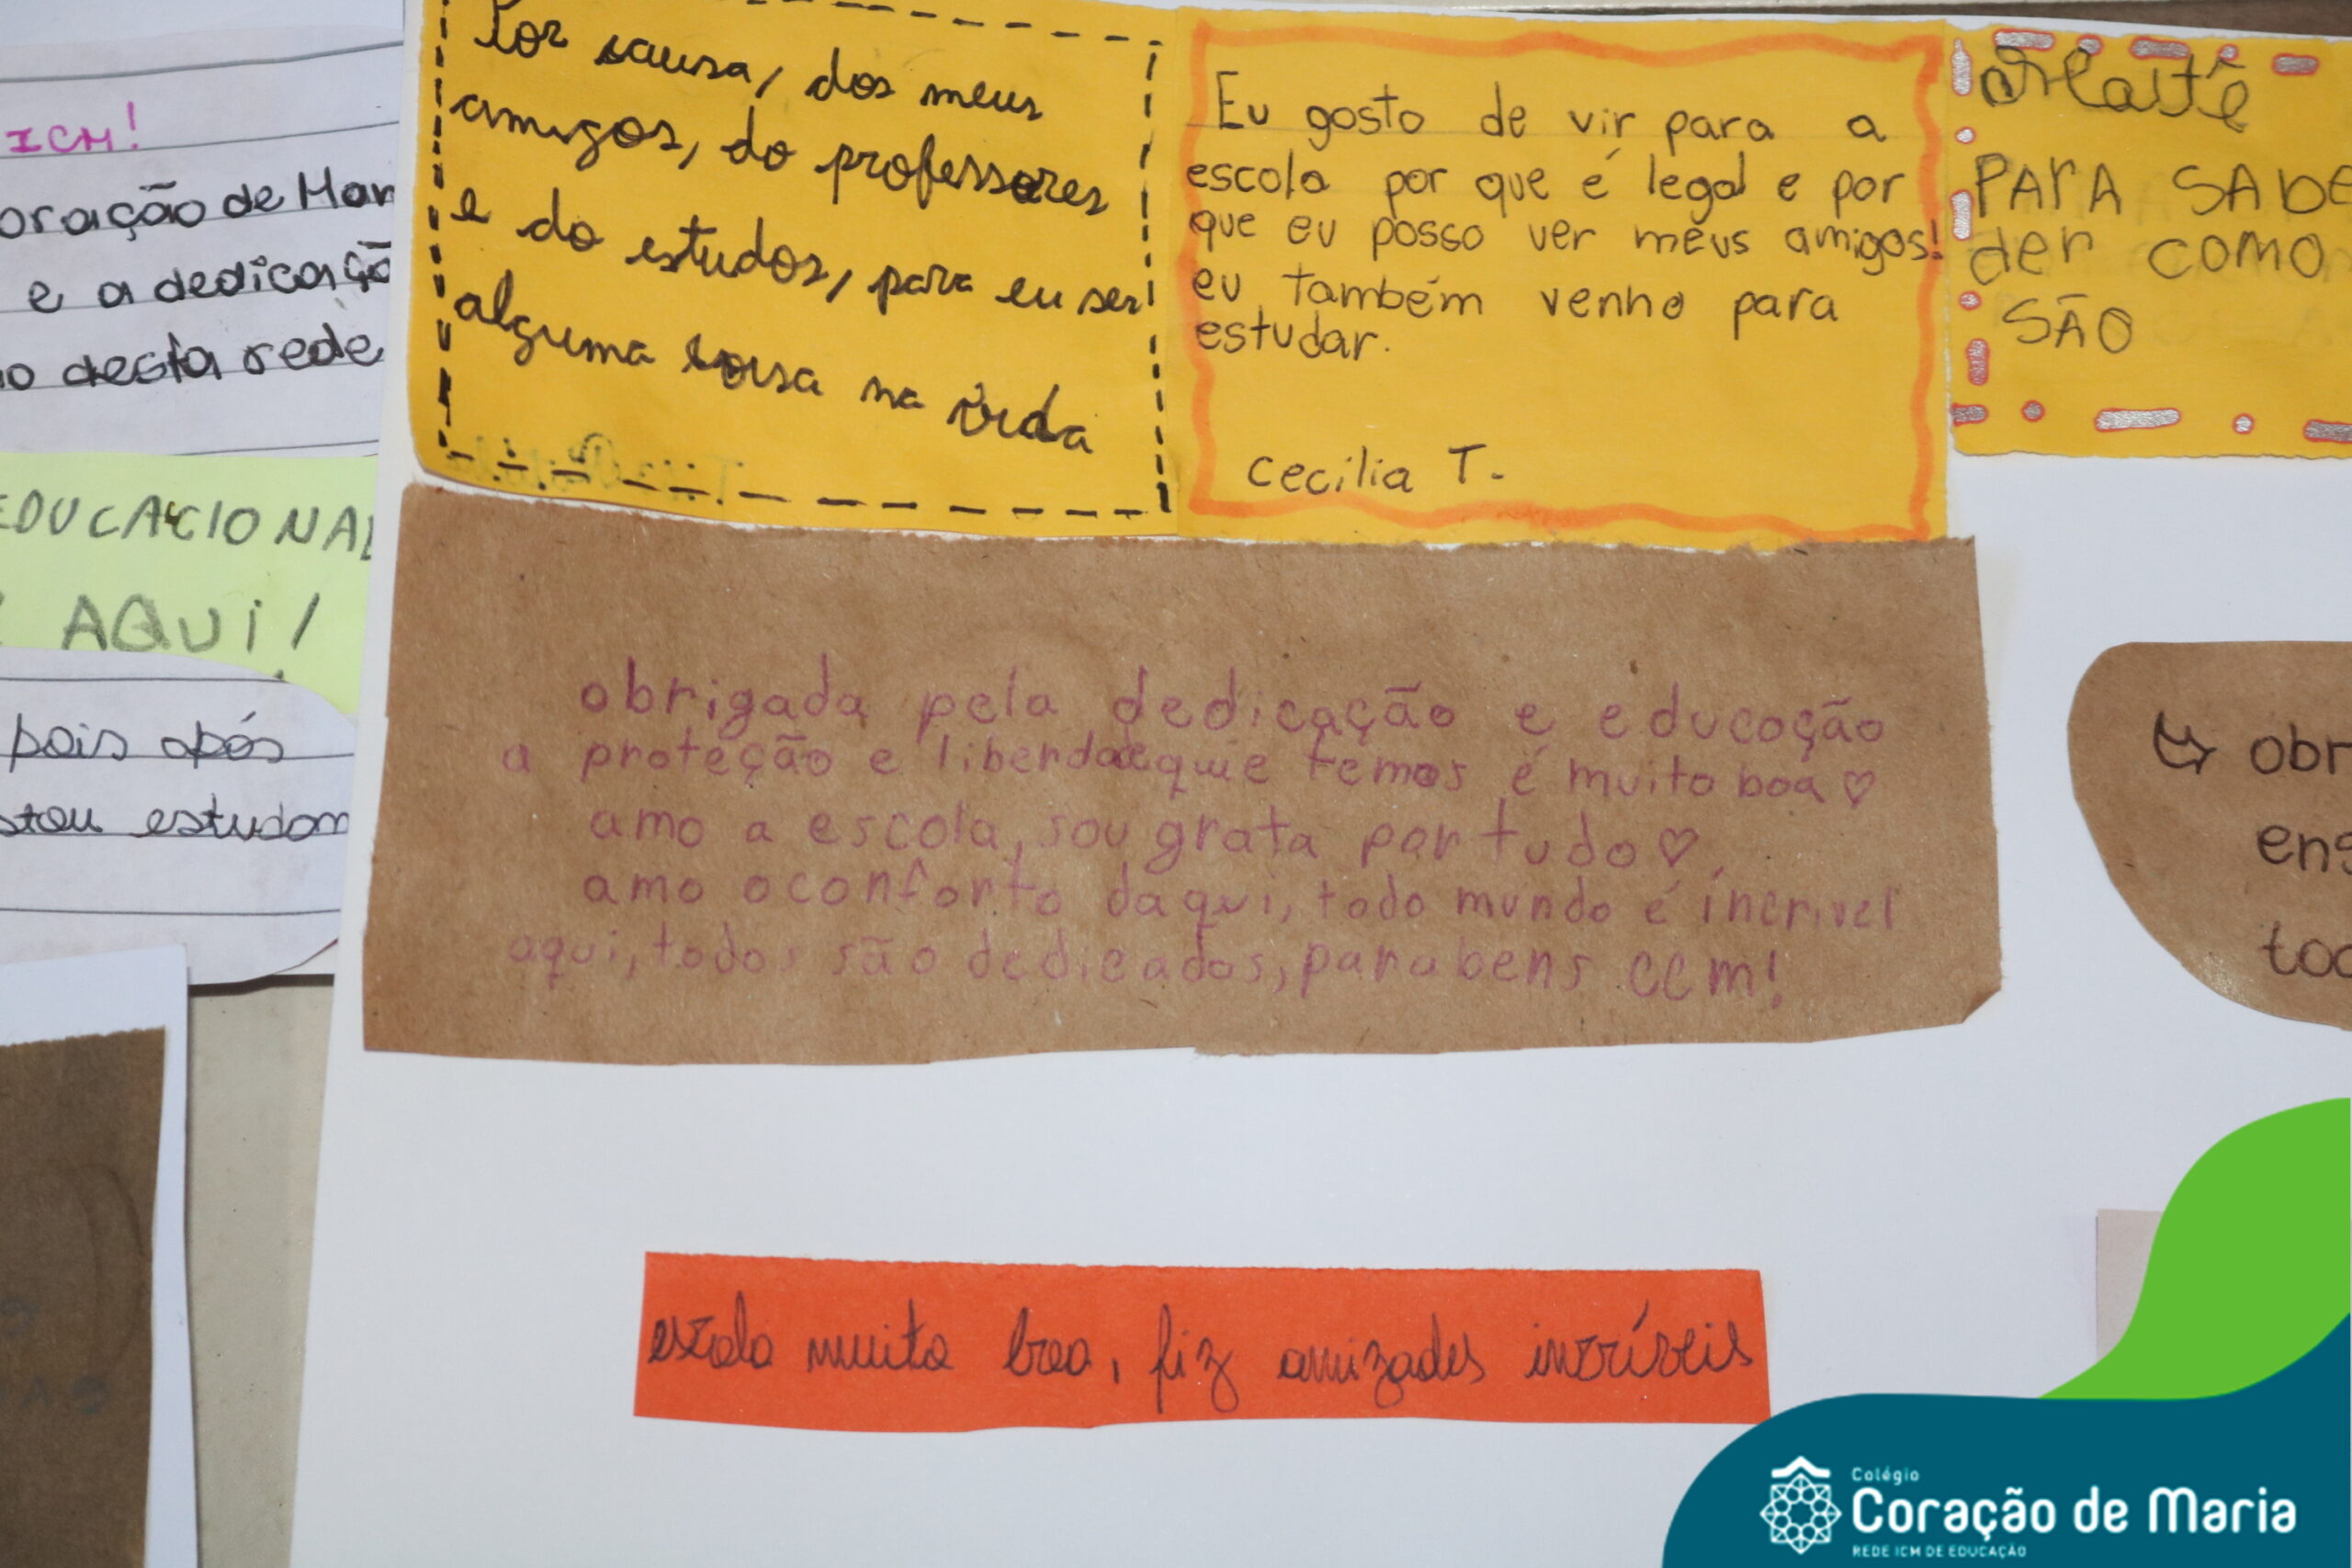 ICM!
oração de Mar
e a dedicaçã
o desta rede
EDUCACIONAL
AQUI!
pois após
stou estudan
Por causa, dos meus
amigos, do professores
e do estudos, para eu ser
alguma coisa na vida
Eu gosto de vir para a
escola por que é legal e por
que eu posso ver meus amigos!
eu também venho para
estudar.
Cecilia T.
Maitê
PARA SABE
der como
SÃO
obrigada pela dedicação e educoção
a proteção e liberdade que temos é muito boa ♡
amo a escola, sou grata por tudo ♡
amo o conforto daqui, todo mundo é íncrivel
aqui, todos são dedicados, parabens CCM!
obr
ens
tod
escola muito boa, fiz amizades incríveis
Colégio
Coração de Maria
REDE ICM DE EDUCAÇÃO